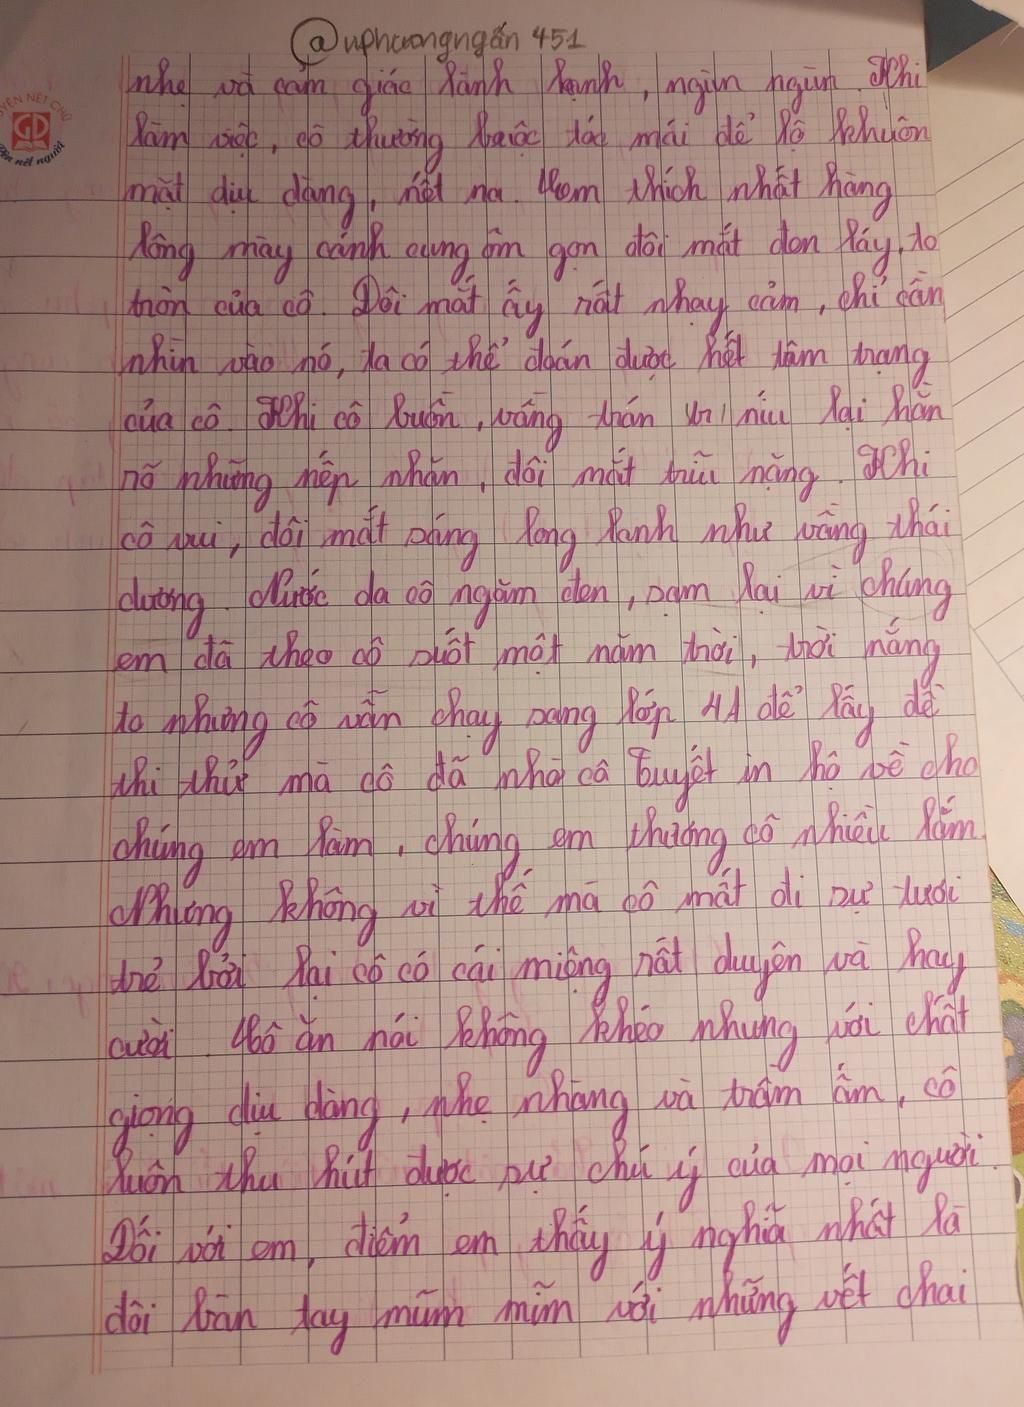 @uphuongngấn 451
nhẹ và cảm giác lành lạnh, ngùn ngũn. Khi
làm việc, cô thường buộc tóc mái để lộ khuôn
mặt dịu dàng, nết na. Hem thích nhất hàng
lông mày cánh cung ôm gọn đôi mắt đen láy, to
tròn của cô. Đôi mắt ấy rất nhạy cảm, chỉ cần
nhìn vào nó, ta có thể đoán được hết tâm trạng
của cô. Khi cô buồn, vầng trán níu lại hằn
rõ những nếp nhăn, đôi mắt trĩu nặng. Khi
cô vui, đôi mắt sáng long lanh như vầng thái
dương. Nước da cô ngăm đen, sạm lại vì chúng
em đã theo cô suốt một năm trời, trời nắng
to nhưng cô vẫn chạy sang lớp 4A để lấy đề
thi thử mà cô đã nhờ cô Tuyết in hộ về cho
chúng em làm, chúng em thương cô nhiều lắm.
Nhưng không vì thế mà cô mất đi sự tươi
trẻ bởi lại cô có cái miệng rất duyên và hay
cười. Cô ăn nói không khéo nhưng với chất
giọng dịu dàng, nhẹ nhàng và trầm ấm, cô
luôn thu hút được sự chú ý của mọi người.
Đối với em, điểm em thấy ý nghĩa nhất là
đôi bàn tay mũm mĩm với những vết chai
GD
nết người